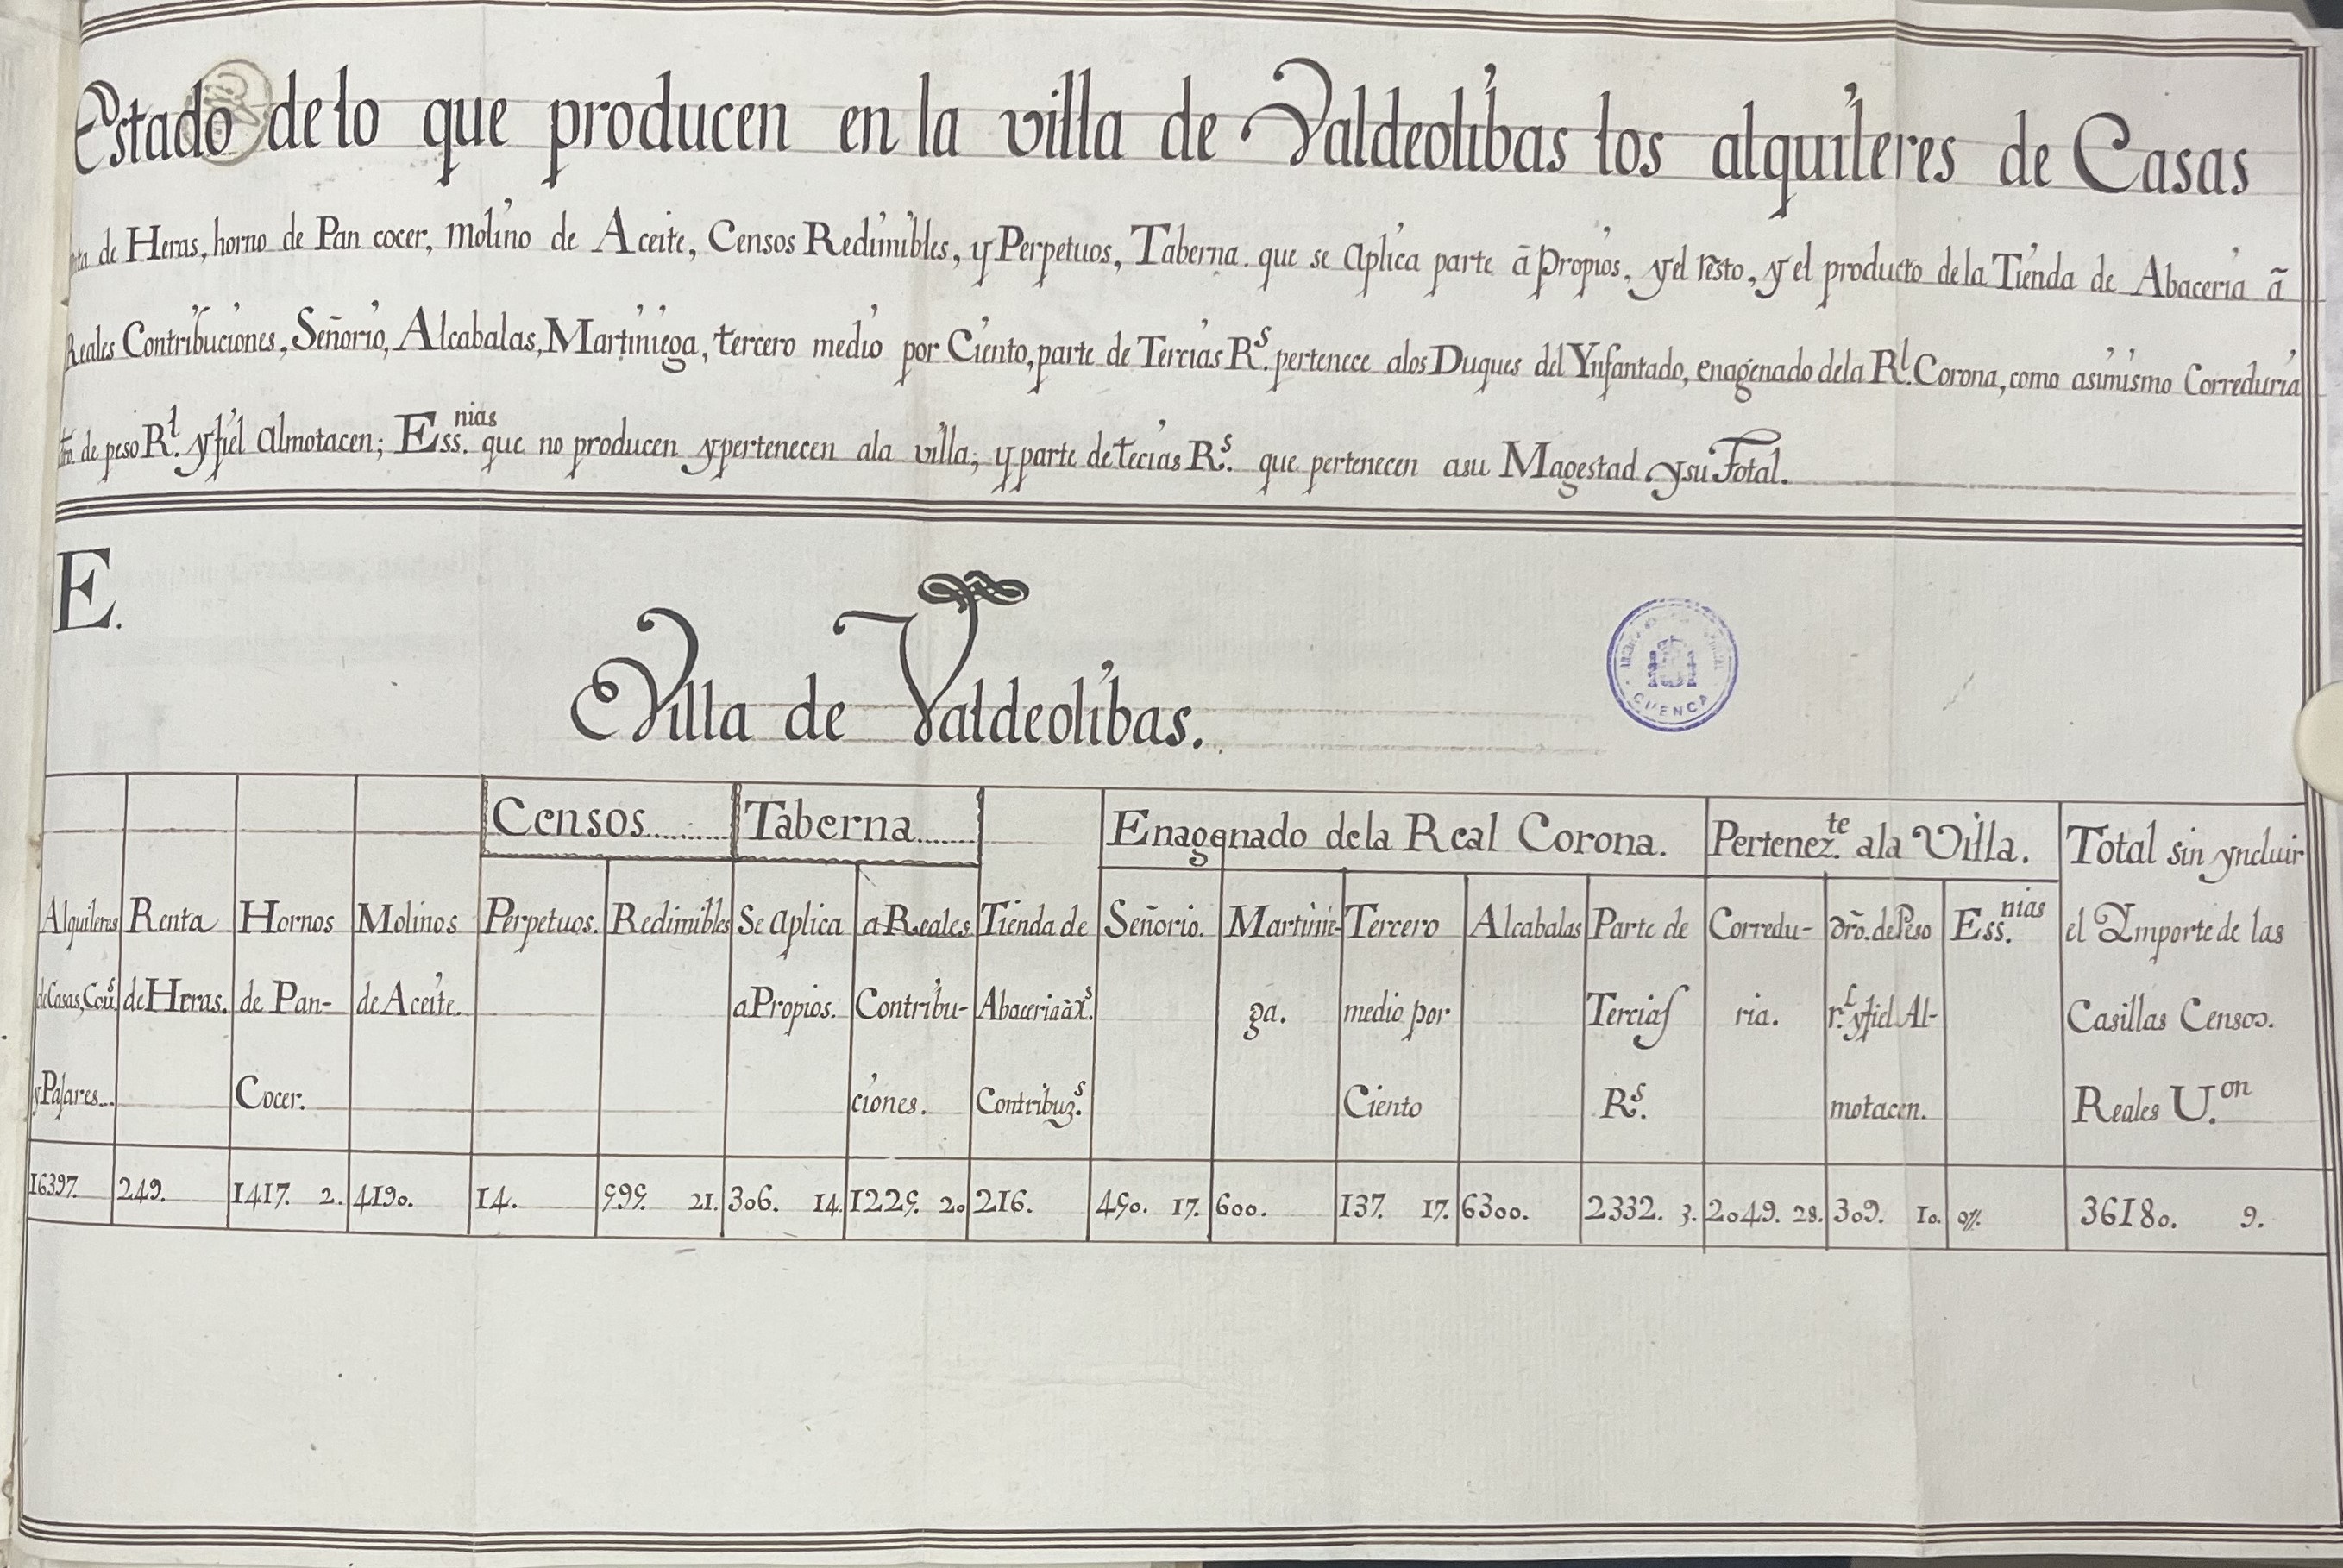 Estado de lo que producen en la villa de Valdeolibas los alquileres de Casas
de Heras, horno de Pan cocer, molino de Aceite, Censos Redimibles, y Perpetuos, Taberna. que se aplica parte ã Propios, y el resto, y el producto de la Tienda de Abaceria ã
Reales Contribuciones, Señorio, Alcabalas, Martiniega, tercero medio por Ciento, parte de Tercias R.s pertenece alos Duques del Ynfantado, enagenado dela R.l Corona, como asimismo Correduria
de peso R.l y fiel Almotacen; Ess.nias que no producen y pertenecen ala villa; y parte de tecias R.s que pertenecen asu Magestad y su Total.
E.
CUENCA
Villa de Valdeolibas.
Censos Taberna Enagenado dela Real Corona. Pertenez.te ala Villa. Total sin yncluir
Alquileres Renta Hornos Molinos Perpetuos. Redimibles Se aplica a Reales Tienda de Señorio. Martinie- Tercero Alcabalas Parte de Corredu- dro. de Peso Ess.nias el Ymporte de las
de Casas, de Heras. de Pan- de Aceite. a Propios. Contribu- Abaceria ga. medio por Tercias ria. r.l y fiel Al- Casillas Censos.
y Pajares Cocer. ciones. Contribuz.s Ciento R.s motacen. Reales U.on
16397. 249. 1417. 2. 4190. 14. 595. 21. 306. 14. 1225. 20 216. 450. 17. 600. 137. 17. 6300. 2332. 3. 2049. 28. 309. 10. 0%. 36180. 9.